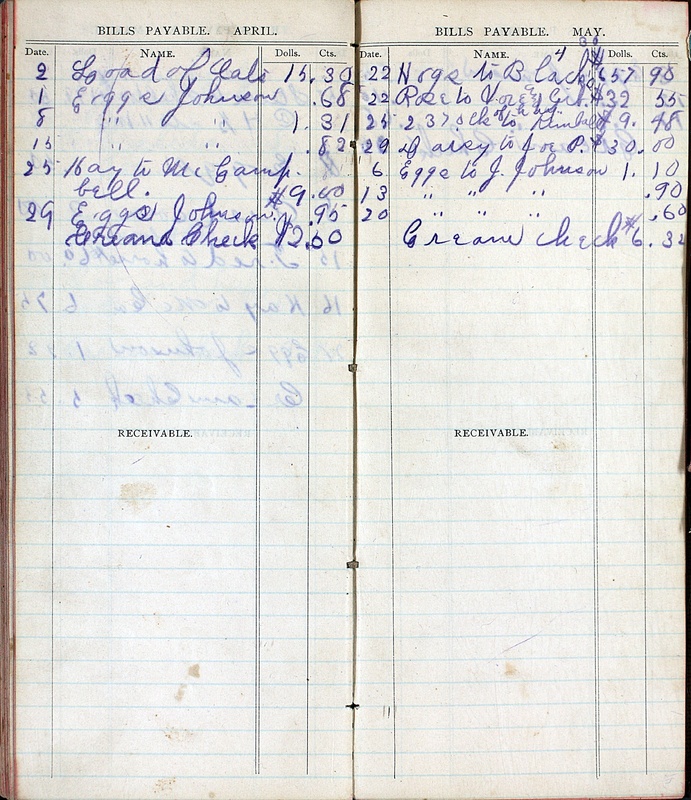 BILLS PAYABLE. APRIL.
Date. NAME. Dolls. Cts.
2 Load of Oats 15.30
1 Eggs Johnson .68
8 " " 1.31
15 " " .82
25 Hay to Mc Camp
bell. $9.00
29 Eggs Johnson. .95
Creamo Check $2.60
RECEIVABLE.
BILLS PAYABLE. MAY.
Date. NAME. Dolls. Cts.
22 4 Hogs to Black $57 98
22 Rose to $32 55
25 to $9. 48
29 Daisy to Joe P. $30.00
6 Eggs to J. Johnson 1. 10
13 " " " .90
20 " " " .60
Creame check $6. 32
RECEIVABLE.